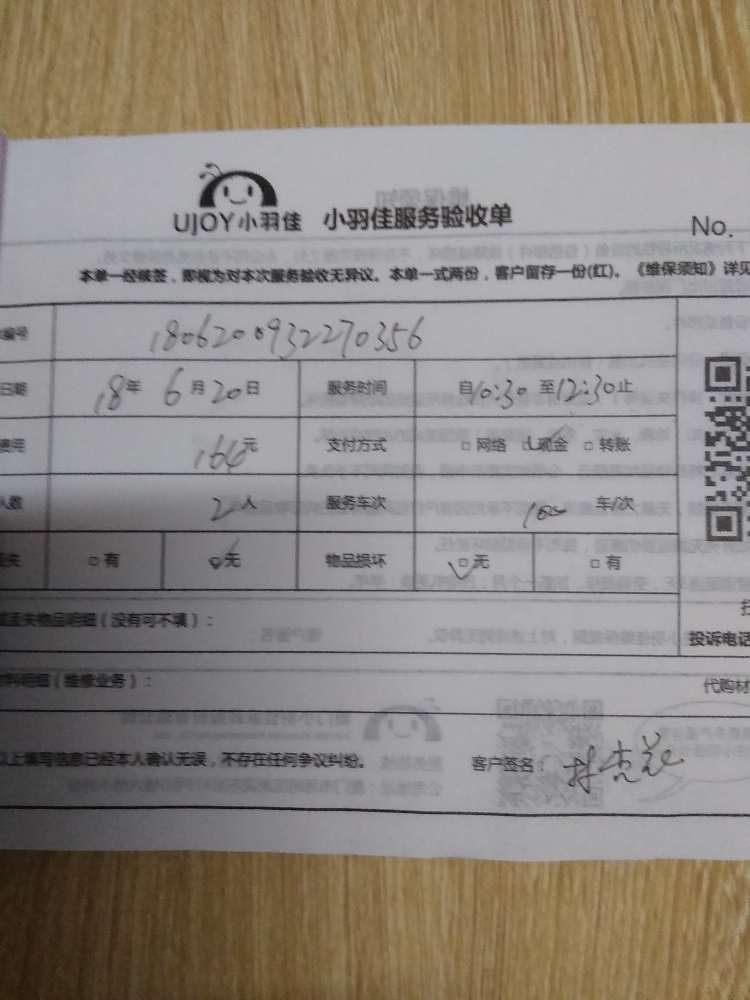 UJOY小羽佳 小羽佳服务验收单
No.
本单一经续签，即视为对本次服务验收无异议。本单一式两份，客户留存一份(红)。《维保须知》详见
编号 1806200932270356
日期 18年 6月20日 服务时间 自10:30 至12:30止
费用 元 支付方式 □ 网络 现金 □ 转账
人数 2人 服务车次 车/次
丢失 □ 有 无 物品损坏 无 □ 有
丢失物品明细（没有可不填）：
投诉电话
材料明细（维修业务）： 代购材
以上填写信息已经本人确认无误，不存在任何争议纠纷。 客户签名：